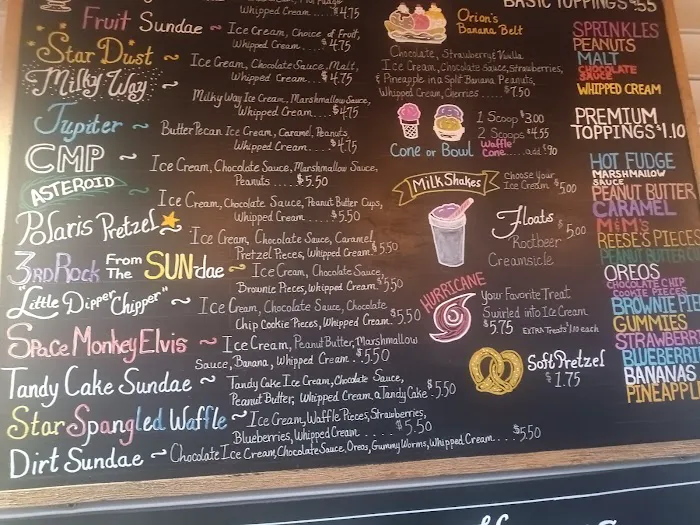 Whipped Cream $4.75
Fruit Sundae ~ Ice Cream, Choice of Fruit,
Whipped Cream .... $4.75
Star Dust ~ Ice Cream, Chocolate Sauce, Malt,
Whipped Cream .... $4.75
Milky Way ~
Milky Way Ice Cream, Marshmallow Sauce,
Whipped Cream .... $4.75
Jupiter ~ Butter Pecan Ice Cream, Caramel, Peanuts
Whipped Cream .... $4.75
CMP ~ Ice Cream, Chocolate Sauce, Marshmallow Sauce,
Peanuts .... $5.50
ASTEROID ~ Ice Cream, Chocolate Sauce, Peanut Butter Cups,
Whipped Cream .... $5.50
Polaris Pretzel ~ Ice Cream, Chocolate Sauce, Caramel,
Pretzel Pieces, Whipped Cream . $5.50
3RD Rock From The SUNdae ~ Ice Cream, Chocolate Sauce,
Brownie Pieces, Whipped Cream . $5.50
"Little Dipper "Chipper" ~ Ice Cream, Chocolate Sauce, Chocolate
Chip Cookie Pieces, Whipped Cream . $5.50
Space Monkey Elvis ~ Ice Cream, Peanut Butter, Marshmallow
Sauce, Banana, Whipped Cream . $5.50
Tandy Cake Sundae ~ Tandy Cake Ice Cream, Chocolate Sauce,
Peanut Butter, Whipped Cream, a Tandy Cake . $5.50
Star Spangled Waffle ~ Ice Cream, Waffle Pieces, Strawberries,
Blueberries, Whipped Cream ..... $5.50
Dirt Sundae ~ Chocolate Ice Cream, Chocolate Sauce, Oreos, Gummy Worms, Whipped Cream .... $5.50
Orion's
Banana Belt
Chocolate, Strawberry & Vanilla
Ice Cream, Chocolate Sauce, Strawberries,
& Pineapple in a Split Banana, Peanuts,
Whipped Cream, Cherries .... $7.50
Cone or Bowl
1 Scoop $3.00
2 Scoops $4.55
Waffle
Cone .... add $.90
MilkShakes
Choose Your
Ice Cream $5.00
Floats $5.00
Rootbeer
Creamsicle
HURRICANE
Your Favorite Treat
Swirled into Ice Cream
$5.75 EXTRA Treats $1.10 each
Soft Pretzel
$1.75
BASIC TOPPINGS $.55
SPRINKLES
PEANUTS
MALT
CHOCOLATE
SAUCE
WHIPPED CREAM
PREMIUM
TOPPINGS $1.10
HOT FUDGE
MARSHMALLOW
SAUCE
PEANUT BUTTER
CARAMEL
M&M's
REESE'S PIECES
PEANUT BUTTER CU
OREOS
CHOCOLATE CHIP
COOKIE PIECES
BROWNIE PIE
GUMMIES
STRAWBERR
BLUEBERRI
BANANAS
PINEAPPL